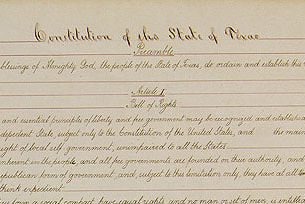 Constitution of the State of Texas
Preamble
blessings of Almighty God, the people of the State of Texas, do ordain and establish this
Article 1
Bill of Rights
and essential principles of liberty and free government may be recognized and establishe
dependent State, subject only to the Constitution of the United States, and the main
ight of local self government, unimpaired to all the States
inherent in the people, and all free governments are founded on their authority, and
republican form of government, and, subject to this limitation only, they have at all
think expedient
social compact, have equal rights, and no man, or set of men, is entitle